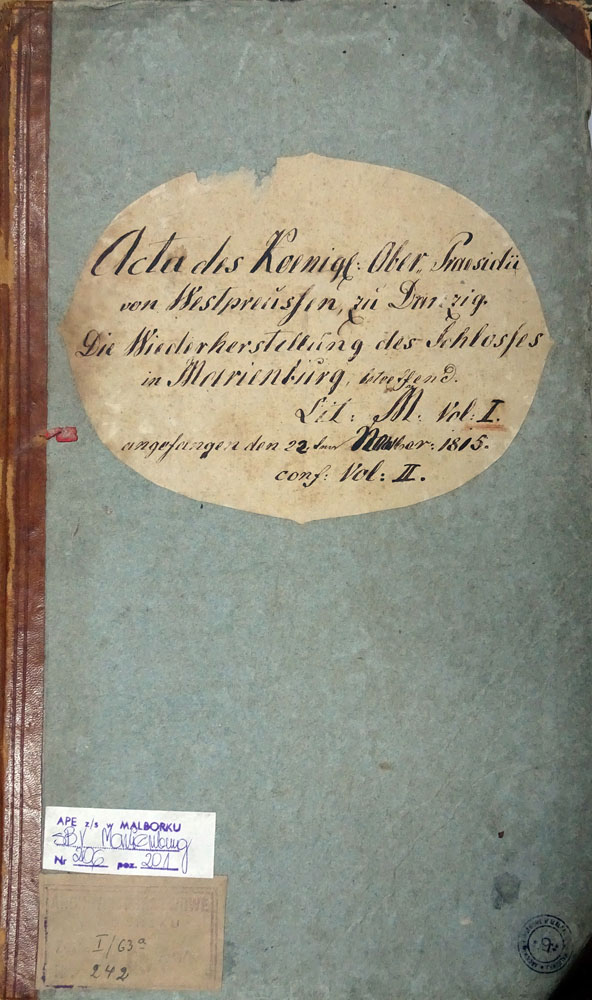 Acta des Koenigl: Ober, Praesidii
von Westpreussen, zu Danzig.
Die Wiederherstellung des Schlosses
in Marienburg, betreffend.
Lit: M. Vol: I.
angefangen den 22 ten November: 1815.
conf: Vol: II.
APE z/s w MALBORKU
Marienburg
Nr 206 poz. 201
I/63a
242